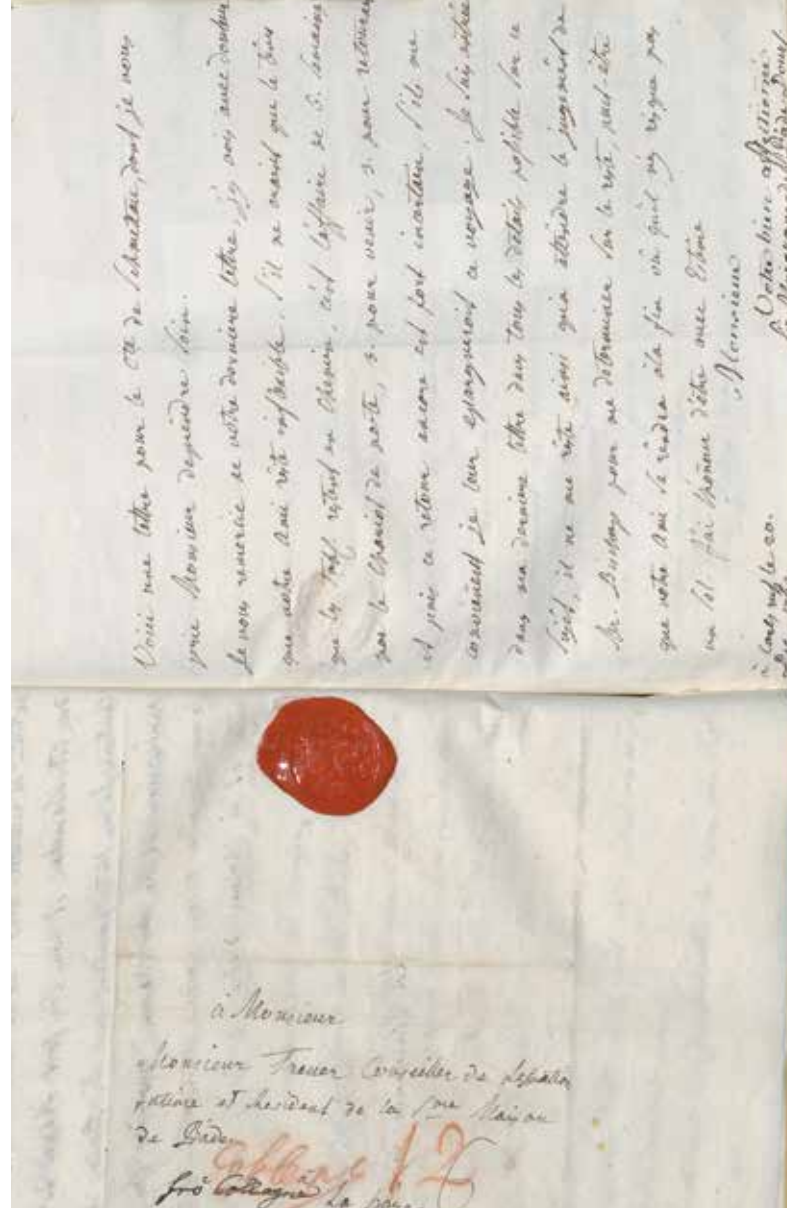 Voici une lettre pour le Cte de          , dont je vous
prie Monsieur de prendre soin.
Je vous remercie de votre derniere lettre, j'y vois avec douleur
que votre Ami reste inflexible. S'il ne craint que le tems
que les        restent en Chemin, c'est l'affaire de 6. semaines
par le Chariot de poste, 3. pour venir, 3. pour retourner
et puis ce retour encore est fort incertain, s'ils me
conviennent je leur epargnerois ce voyage. Je suis entré
dans ma derniere lettre dans tous les détails possible sur ce
sujet, il ne me reste ainsi qu'a attendre le jugement de
Mr.          pour me determiner sur le reste, peut-être
que votre Ami se rendra à la fin vû qu'il n'y risque pas
un sol. J'ai l'honneur d'être avec Estime
Monsieur
Votre bien affectionné
à Carlsruhe le 20.
à Monsieur
Monsieur Treuer Conseiller de Legation
        et Resident de la Sme Maison
de Baden
12
fro Cologne à La Haye